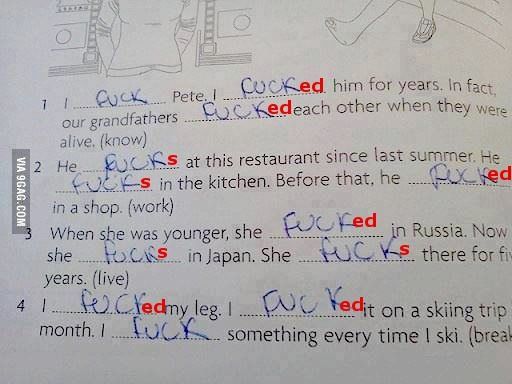 1 I fuck Pete. I fucked him for years. In fact,
our grandfathers fucked each other when they were
alive. (know)
2 He fucks at this restaurant since last summer. He
fucks in the kitchen. Before that, he fucked
in a shop. (work)
3 When she was younger, she fucked in Russia. Now
she fucks in Japan. She fucks there for fi
years. (live)
4 I fucked my leg. I fucked it on a skiing trip
month. I fuck something every time I ski. (break
VIA 9GAG.COM